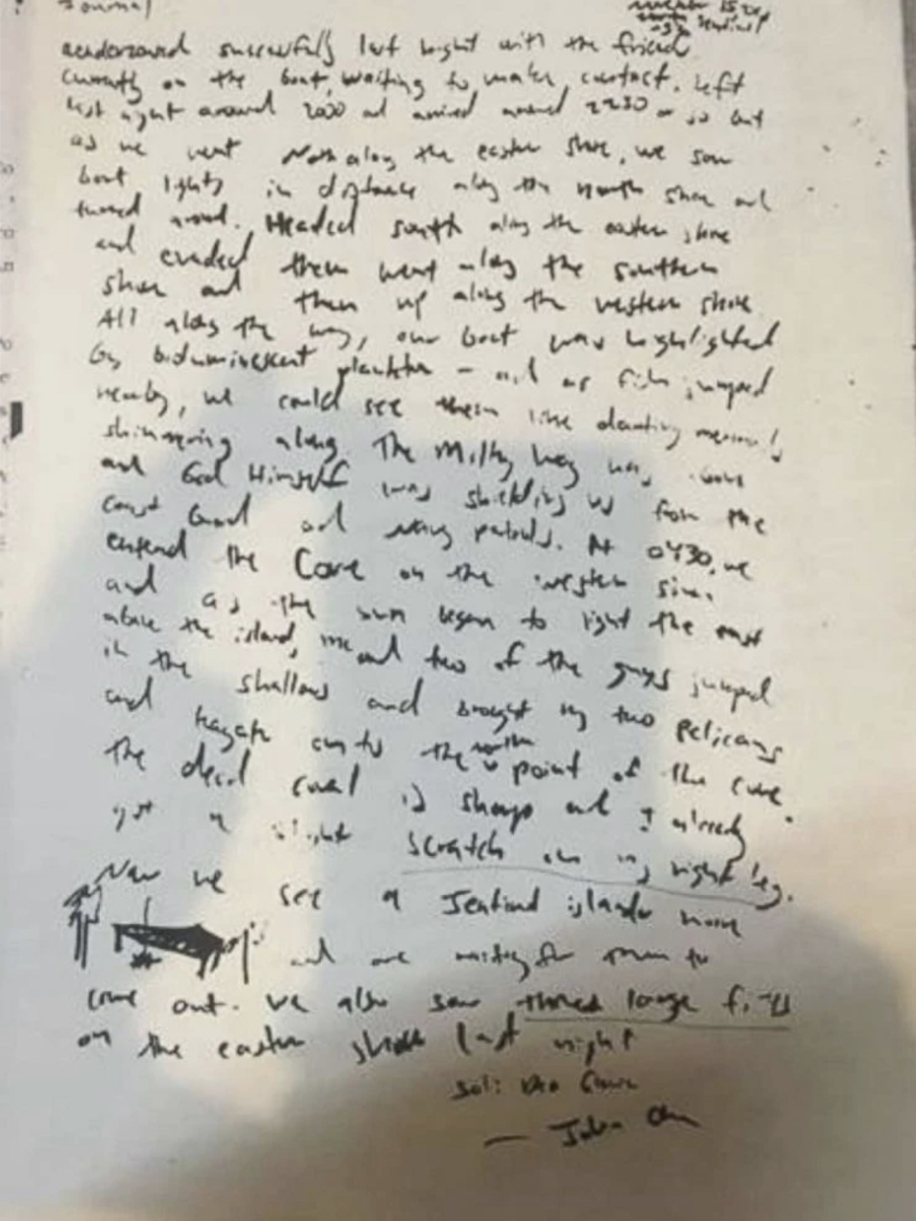 Journal
Sentinel
successfully last night with the friend
currently on the boat, waiting to make contact. Left
last night around 2000 and arrived around 2230 or so but
as we went North along the eastern shore, we saw
boat lights in distance along the North shore and
turned around. Headed south along the eastern shore
and evaded them went along the southern
shore and then up along the western shore
All along the way, our boat was highlighted
by bioluminescent plankton – and as fish jumped
nearby, we could see them like darting mermaids
shimmering along. The Milky Way was above
and God Himself was shielding us from the
Coast Guard and Navy patrols. At 0430, we
entered the Cove on the western side
and as the sun began to light the east
above the island, me and two of the guys jumped
in the shallows and brought my two pelicans
and kayak onto the north point of the cove.
The dead coral is sharp and I already
got a slight scratch on my right leg.
Now we see a Sentinel islander
and are waiting for them to
come out. We also saw three large fires
on the eastern shore last night
Soli Deo Gloria
— John